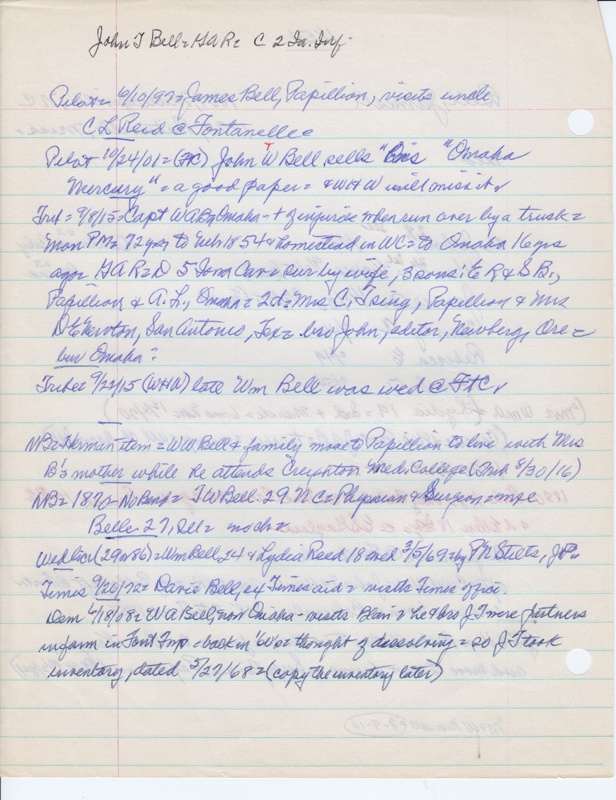 John T Bell = GAR = C 2 Ia. Inf.
Pilot = 6/10/97 = James Bell, Papillion, visits uncle
C L Reid @ Fontanelle =
Pilot 10/24/01 = (FtC) John W T Bell sells "his "Omaha
Mercury" = a good paper = & WHW will miss it
Trib = 9/8/15 = Capt WAB, Omaha = + of injuries when run over by a truck =
Mon PM = 72 yrs to Neb 1854 & homestead in WC = to Omaha 16 yrs
ago = GAR = D 5 Iowa Cav = sur by wife, 3 sons: E R & S B.,
Papillion & A. L., Omaha = 2 d = Mrs C. Tsing, Papillion & Mrs
D E Newton, San Antonio, Tex = bro John, editor, Newberg, Ore =
bur Omaha?
Tribe = 9/22/15 (WHW) late Wm Bell was wed @ FtC
NB = Herman item = WW Bell & family move to Papillion to live with Mrs
B's mother while he attends Creighton Med. College (Trib 8/30/16)
NB = 1870 - No Bend = J W Bell 29 NC = Physician & Surgeon =
Belle 27, Ill = no ch =
Wed lic (29 or 86) = Wm Bell, 24 & Lydia Reed 18 md 3/5/69 = by P M Stilts, JP =
Times 9/20/72 = David Bell, ex Times aid = visits Times office.
Dem 4/18/08 = W A Bell, now Omaha - visits Blair = he & bro J T were partners
in farm in Font Twp = back in '60s = thought of dissolving = so J T took
inventory, dated 5/27/68 = (copy the inventory later)